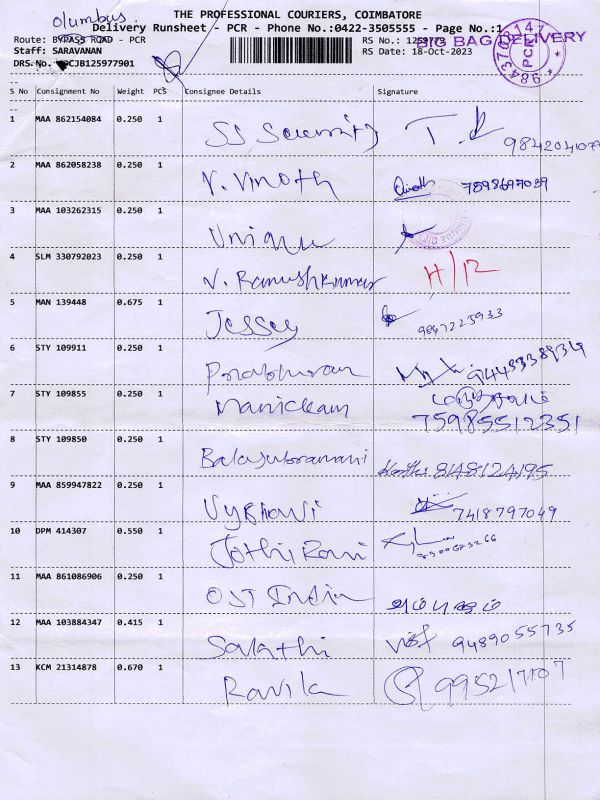 olumbus
THE PROFESSIONAL COURIERS, COIMBATORE
Delivery Runsheet - PCR - Phone No.:0422-3505555 - Page No.:1
Route: BYPASS ROAD - PCR RS No.: 1259779
BIG BAG DELIVERY
Staff: SARAVANAN RS Date: 18-Oct-2023
DRS No. PCJB125977901
PCR
S No Consignment No Weight PCS Consignee Details Signature
1 MAA 862154084 0.250 1 SS Security 9842041079
2 MAA 862058238 0.250 1 V. Vinoth 7598697039
3 MAA 103262315 0.250 1 Unique
4 SLM 330792023 0.250 1 V. Ramushkumar H/12
5 MAN 139448 0.675 1 Jessey 9847225933
6 STY 109911 0.250 1 Prabhuram
7 STY 109855 0.250 1 Manickam 75985512351
8 STY 109850 0.250 1 Balasubramani 8148124195
9 MAA 859947822 0.250 1 Vybhavi 7418797049
10 DPM 414307 0.550 1 Jothi Rani
11 MAA 861086906 0.250 1 OST India
12 MAA 103884347 0.415 1 Sarathi 9489055735
13 KCM 21314878 0.670 1 9952171107